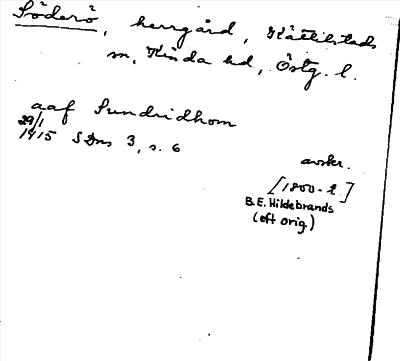 Söderö, herrgård, Kättilstads
sn, Kinda hd, Östg. l.
aaf Sundridhom
29/1
1415 SDns 3, s. 6
avskr.
[1800-t]
B.E. Hildebrands
(eft orig.)